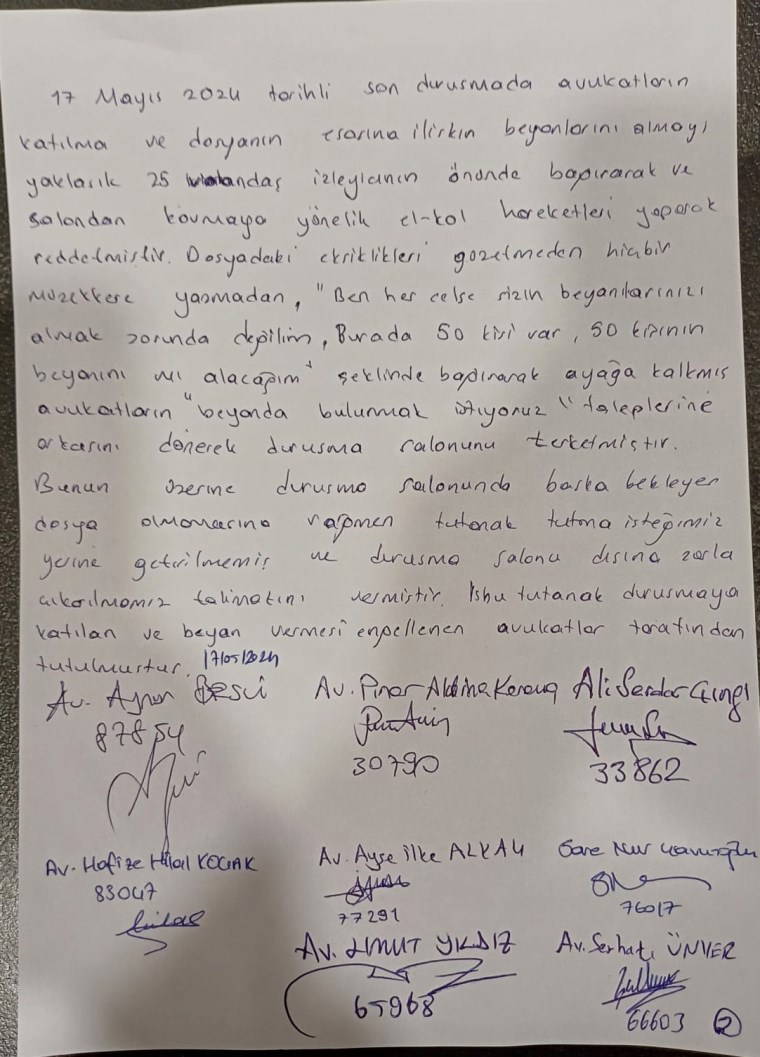 17 Mayıs 2024 tarihli son durusmada avukatların
katılma ve dosyanın esasına iliskin beyanlarını almayı
yaklasık 25 vatandaş izleyicinin önünde bağırarak ve
salondan kovmaya yönelik el-kol hareketleri yaparak
reddetmistir. Dosyadaki eksiklikleri gözetmeden hicbir
müzekkere yazmadan, "Ben her celse sizin beyanlarınızı
almak zorunda değilim, Burada 50 kisi var, 50 kisinin
beyanını mı alacağım" seklinde bağırarak ayağa kalkmıs
avukatların "beyanda bulunmak istiyoruz" taleplerine
arkasını dönerek durusma salonunu terketmistir.
Bunun üzerine durusma salonunda baska bekleyen
dosya olmamasına rağmen tutanak tutma isteğimiz
yerine getirilmemis ve durusma salonu dısına zorla
cıkarılmamız talimatını vermistir. Isbu tutanak durusmaya
katılan ve beyan vermesi engellenen avukatlar tarafından
tutulmustur. 17/05/2024
Av. Besci Av. Pınar Ali Serdar
87854 30790 33862
Av. Hafize Hilal KOÇAK Av. Ayse ilke ALKAN Sare Nur
83047 77291 76017
Av. UMUT YILDIZ Av. Serhat ÜNVER
65968 66603 2